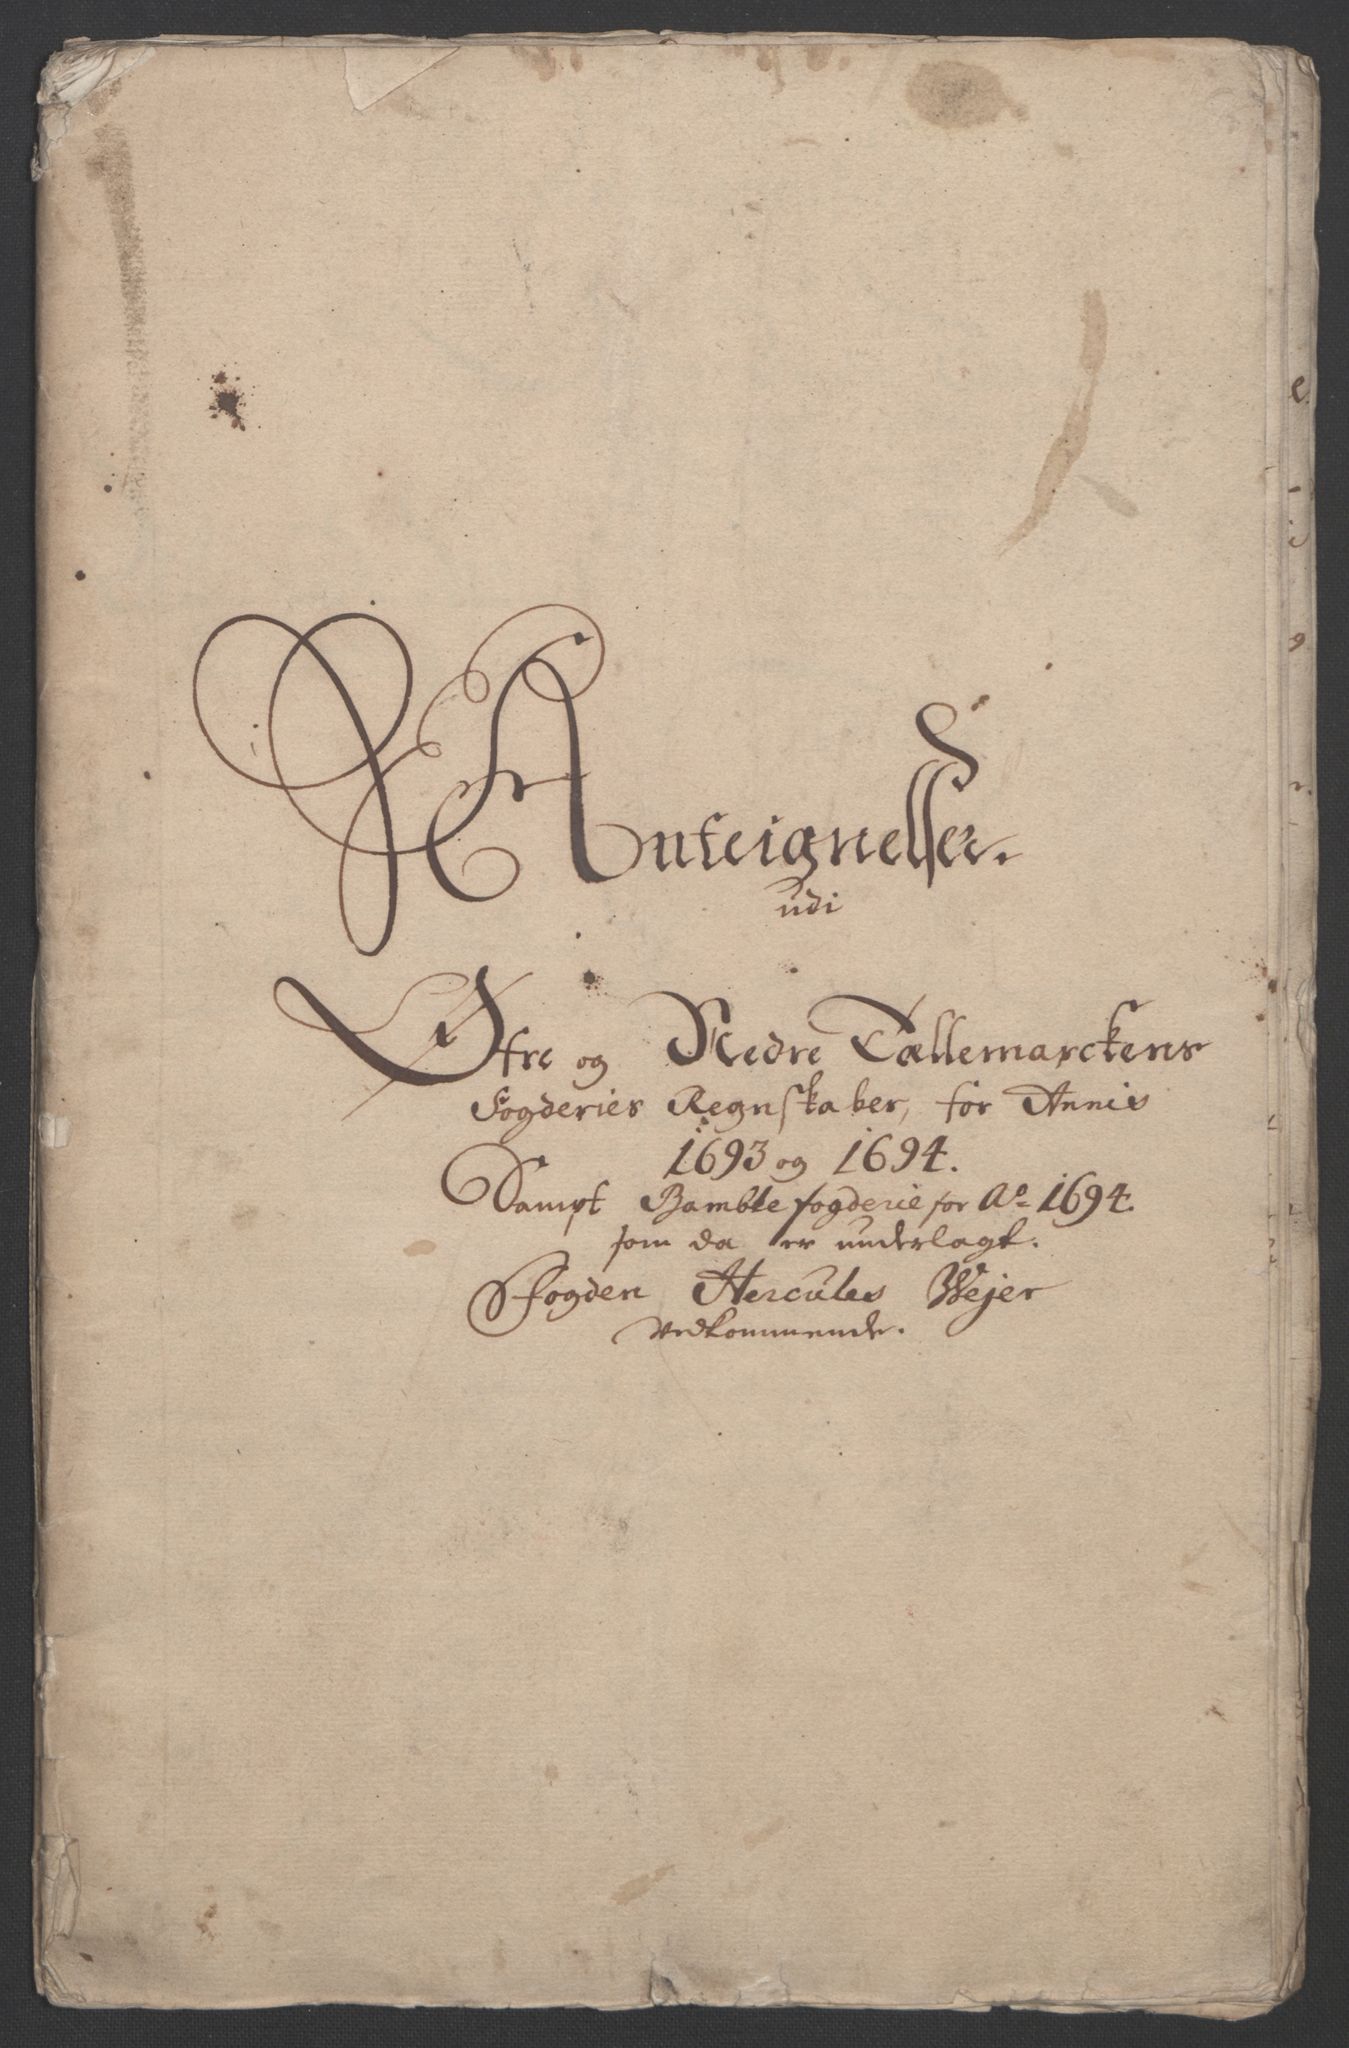 Anteignelsser.
udi
Øfre og Nedre Tællemarckens
Fogderies Regnskaber, for Annis
1693 og 1694.
Sampt Bamble fogderie for Aº 1694.
som da er underlagt.
Fogden Hercules Wejer
vedkommende.